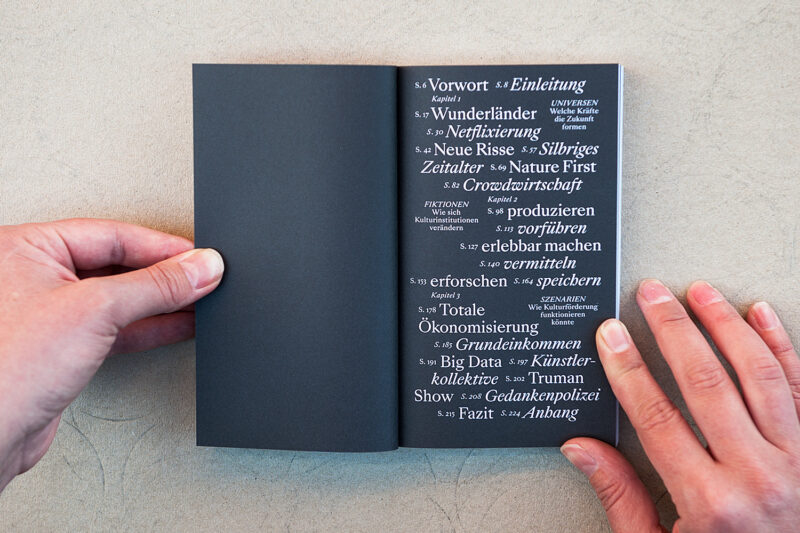 S. 6 Vorwort S. 8 Einleitung
Kapitel 1
S. 17 Wunderländer
UNIVERSEN
Welche Kräfte
die Zukunft
formen
S. 30 Netflixierung
S. 42 Neue Risse S. 57 Silbriges
Zeitalter S. 69 Nature First
S. 82 Crowdwirtschaft
Kapitel 2
FIKTIONEN
Wie sich
Kulturinstitutionen
verändern
S. 98 produzieren
S. 113 vorführen
S. 127 erlebbar machen
S. 140 vermitteln
S. 153 erforschen S. 164 speichern
Kapitel 3
SZENARIEN
Wie Kulturförderung
funktionieren
könnte
S. 178 Totale
Ökonomisierung
S. 183 Grundeinkommen
S. 191 Big Data S. 197 Künstler-
kollektive S. 202 Truman
Show S. 208 Gedankenpolizei
S. 215 Fazit S. 224 Anhang